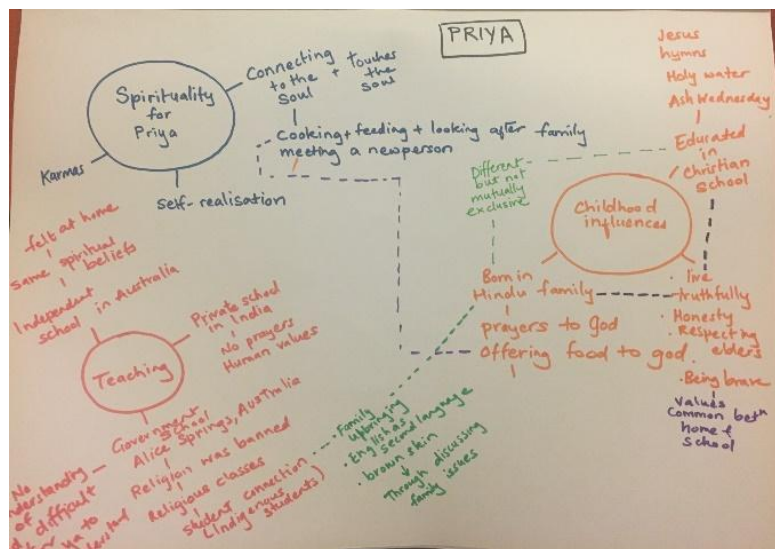 PRIYA
Spirituality
for
Priya
Connecting
to the
soul
+
Touches
the
soul
Cooking + feeding + looking after family
meeting a new person
Karmas
Self-realisation
Jesus
hymns
Holy water
Ash Wednesday
Educated
in
Christian
school
Different
but not
mutually
exclusive
Childhood
influences
Born in
Hindu family
prayers to god
Offering food to god.
. live
truthfully
. Honesty
. Respecting
elders
. Being brave
Values
Common betn
home &
school
felt at home
same spiritual
beliefs
Independent
school in Australia
Private school
in India
No prayers
Human values
Teaching
Government
School
Alice Springs, Australia
Religion was banned
Religious classes
Student connection
(Indigenous
students)
No
of
difficult
to
. Family
upbringing
. English as
second language
. brown skin
Through discussing
family issues